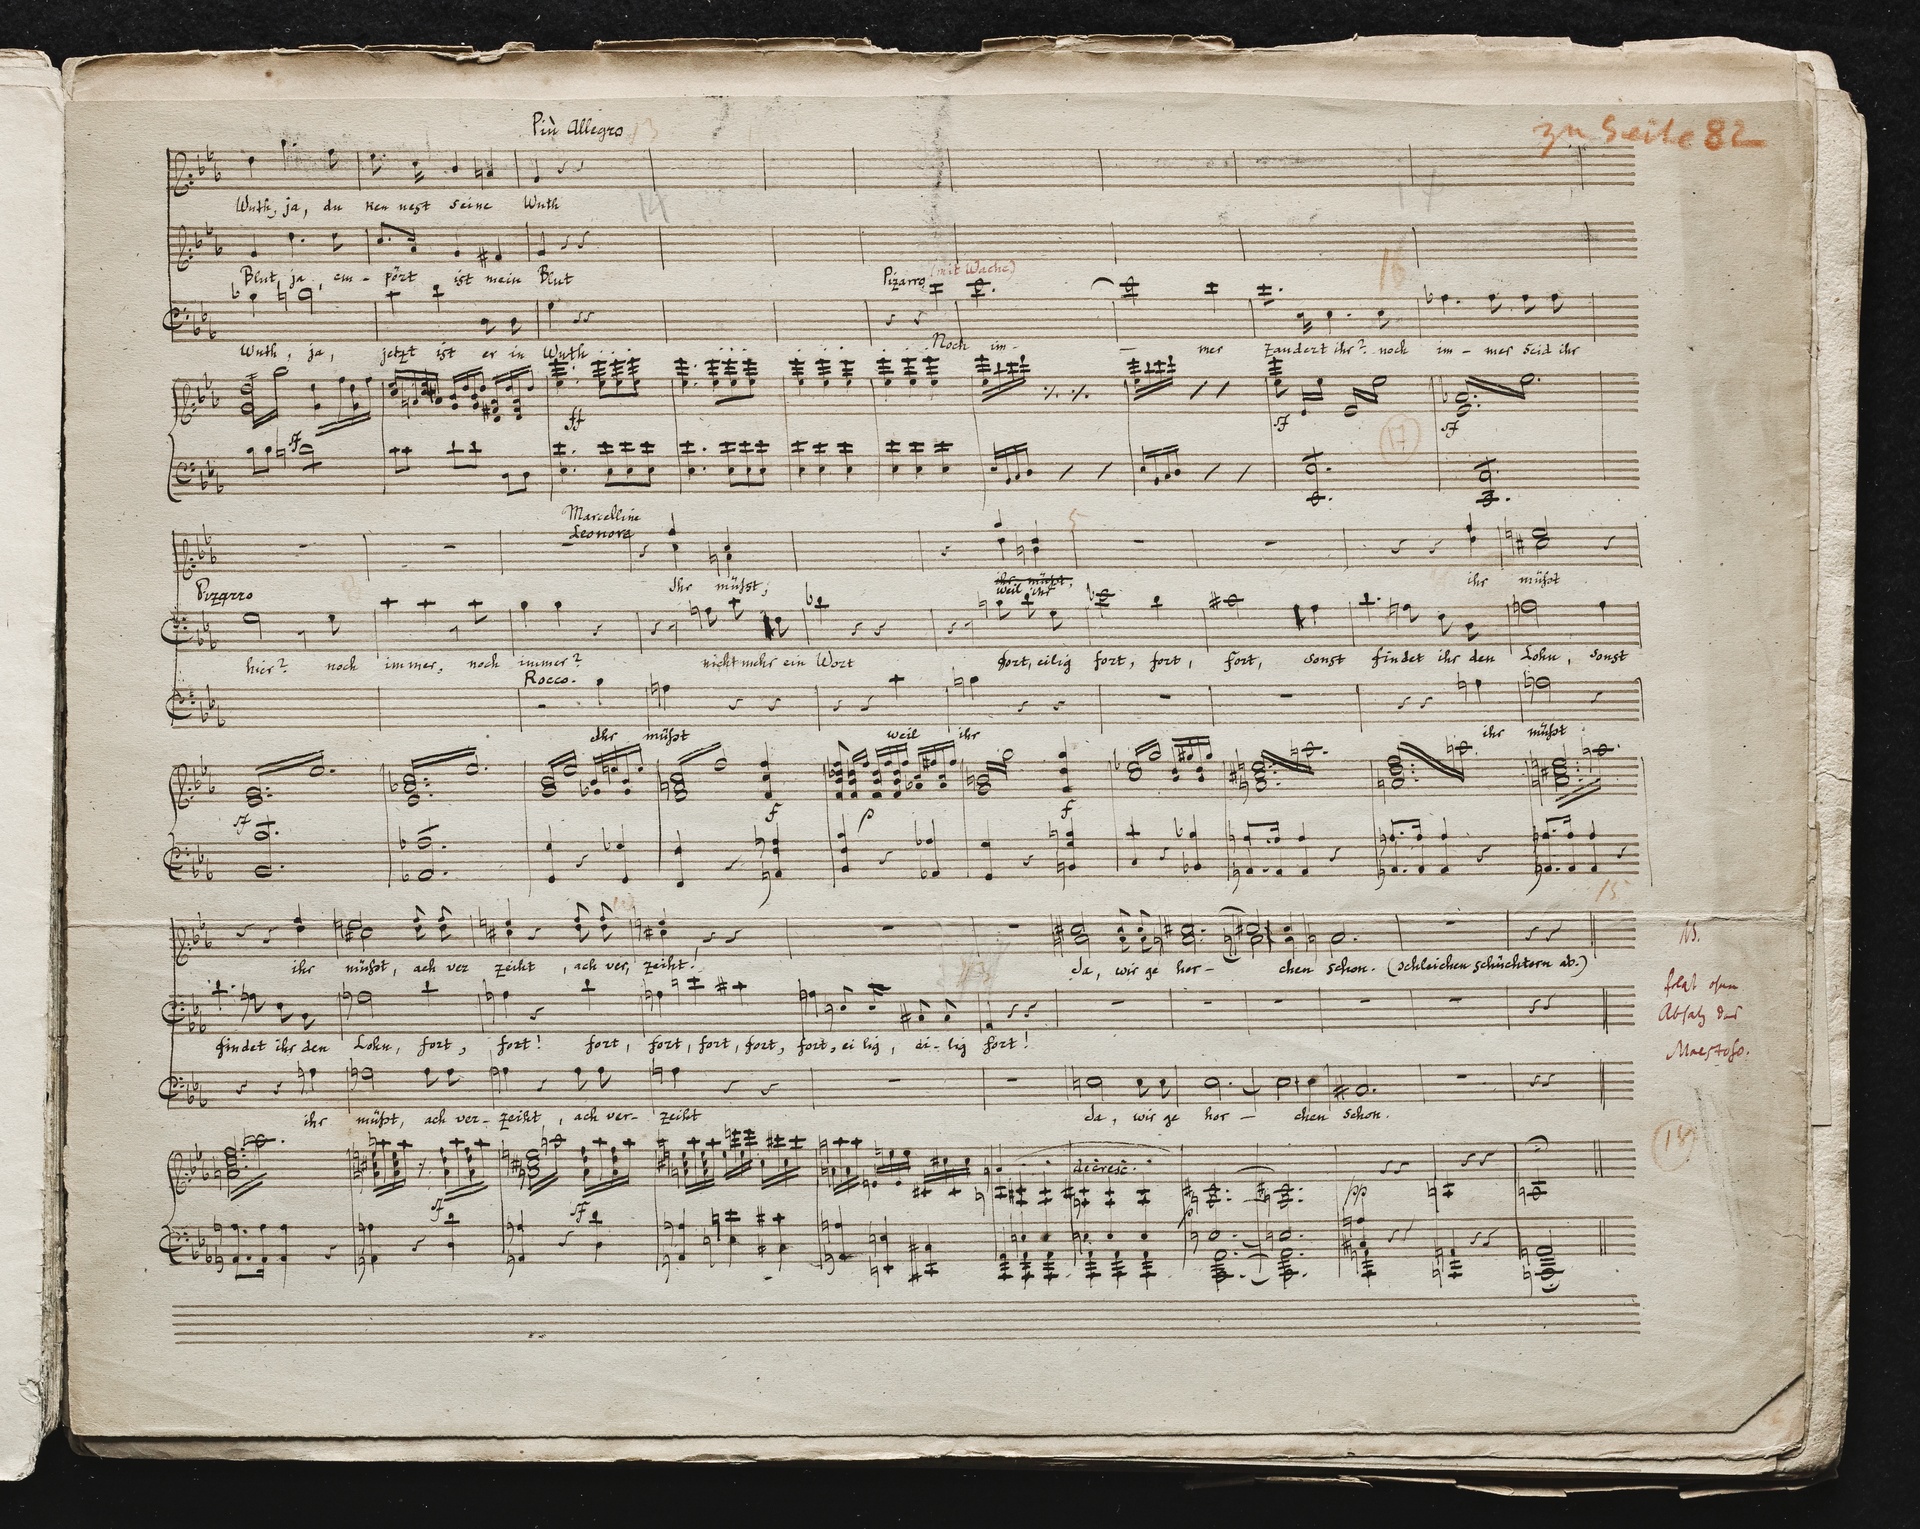 Più Allegro 13
zu Seite 82
Wuth, ja, du ken nest seine Wuth
14 14
Blut, ja, em - pört ist mein Blut
Pizarro (mit Wache) 16
Wuth, ja, jetzt ist er in Wuth
Noch im - — mer zaudert ihr? noch im - mer seid ihr
ff sf sf
17
sf
Marcelline
Leonore
5
Ihr müßt,
ihr müßt,
weil ihr
ihr müßt
Pizarro
hier? noch immer, noch immer? nicht mehr ein Wort fort, eilig fort, fort, fort, sonst findet ihr den Lohn, sonst
Rocco.
Ihr müßt weil ihr ihr müßt
sf f p f
15
ihr müßt, ach ver zeiht, ach ver, zeiht! da, wir ge hor - chen schon. (schleichen schüchtern ab.)
15.
folgt ohne
Absatz das
Maestoso.
findet ihr den Lohn, fort, fort! fort, fort, fort, fort, fort, ei lig, ei - lig fort!
ihr müßt, ach ver - zeiht, ach ver - zeiht da, wir ge hor — chen schon.
decresc.
sf sf p pp
18